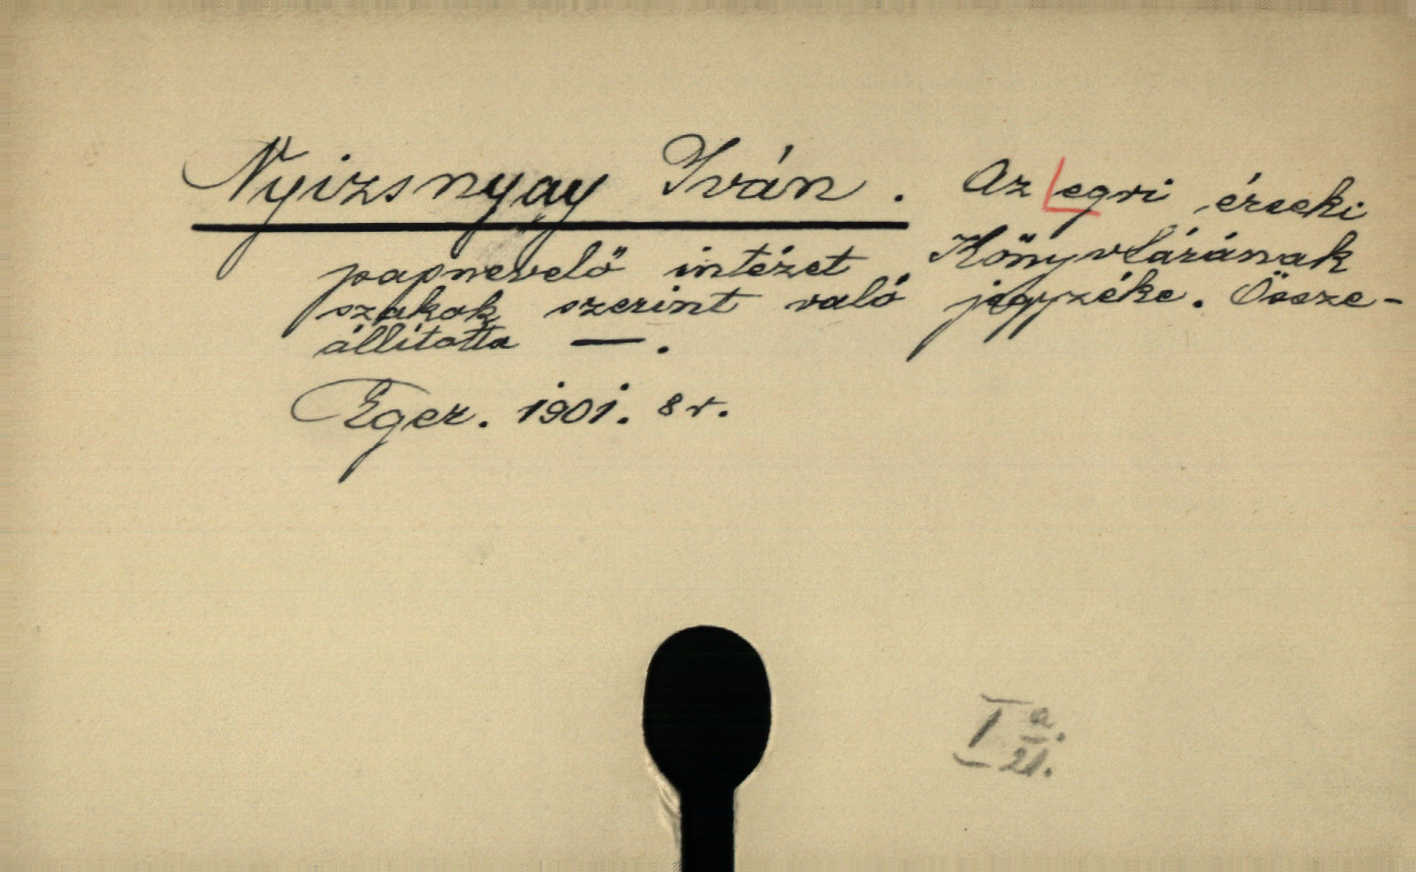 Nyizsnyay Iván. Az egri érseki
papnevelő intézet Könyvtárának
szakok szerint való jegyzéke. Össze-
állította —.
Eger. 1901. 8 r.
I a.
21.